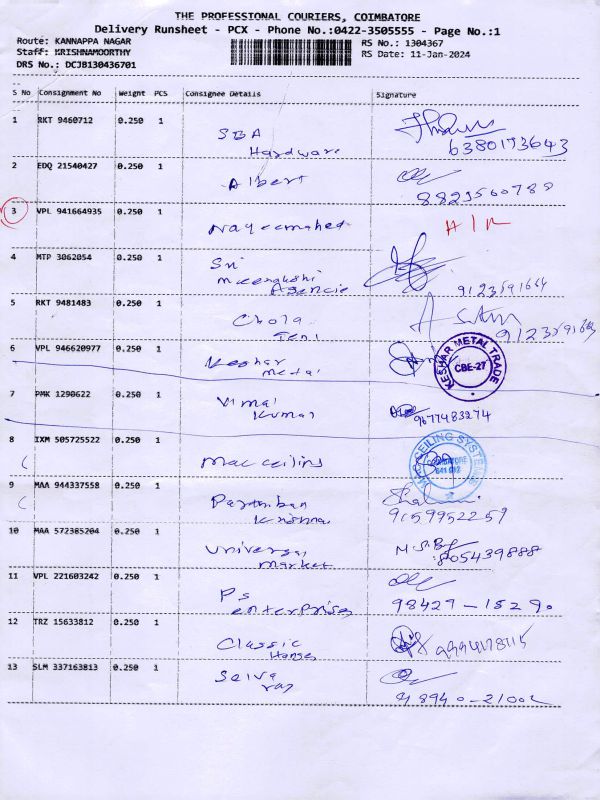 THE PROFESSIONAL COURIERS, COIMBATORE
Delivery Runsheet - PCX - Phone No.:0422-3505555 - Page No.:1
Route: KANNAPPA NAGAR RS No.: 1304367
Staff: KRISHNAMOORTHY RS Date: 11-Jan-2024
DRS No.: DCJB130436701
S No Consignment No Weight PCS Consignee Details Signature
1 RKT 9460712 0.250 1 SBA
Hardware 6380173643
2 EDQ 21540427 0.250 1 Albert
3 VPL 941664935 0.250 1
4 MTP 3062054 0.250 1 Sri
Meenakshi
Agencie
5 RKT 9481483 0.250 1 Chola
6 VPL 946620977 0.250 1 Keshar
metal KESHAR METAL TRADE
CBE-27
7 PMK 1290622 0.250 1 Vimal
Kumar 9677483274
8 IXM 505725522 0.250 1 Mac ceilins
COIMBATORE
9 MAA 944337558 0.250 1
Krishna 9159952259
10 MAA 572385204 0.250 1 Universal
market 805439888
11 VPL 221603242 0.250 1 PS
enterprises 98429-15290
12 TRZ 15633812 0.250 1 Classic
13 SLM 337163813 0.250 1 Selva
raj